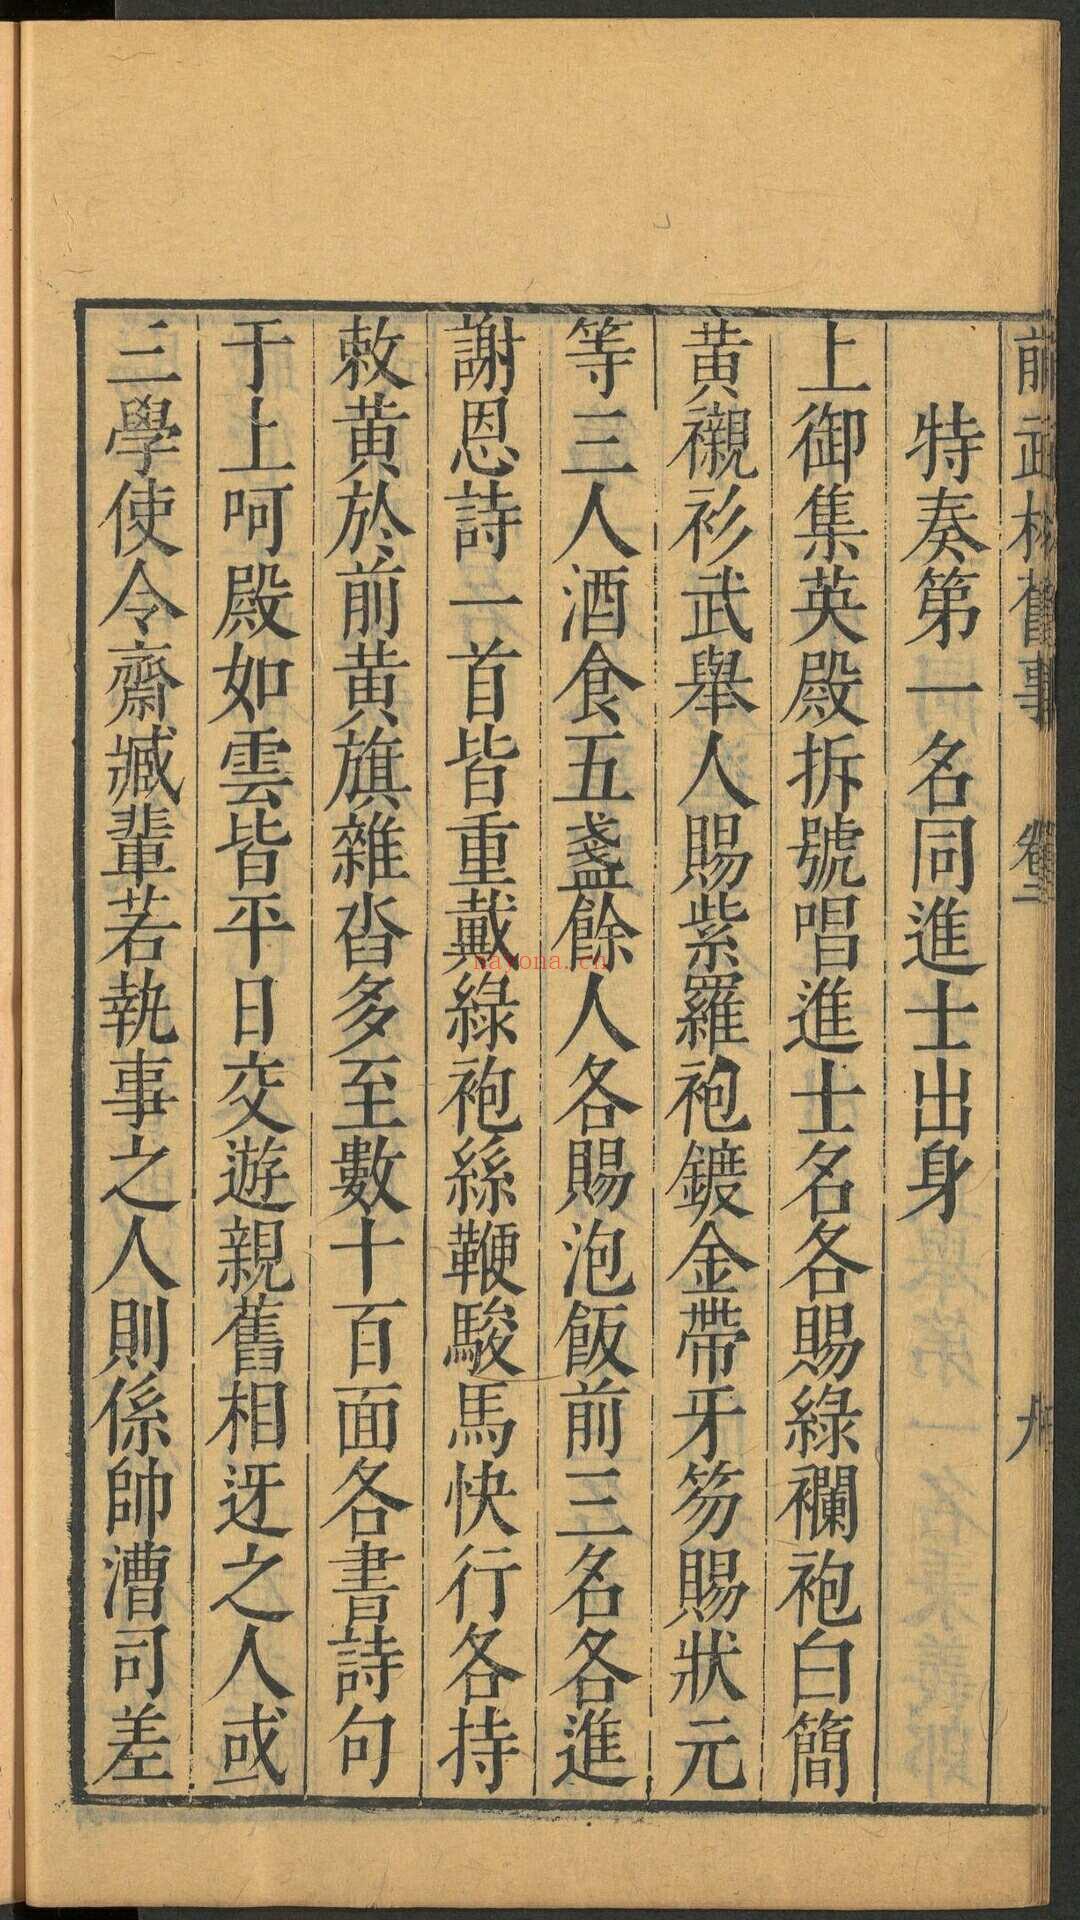 前武林舊事 卷二 九
特奏第一名同進士出身
上御集英殿拆號唱進士名各賜綠襴袍白簡
黃襯衫武舉人賜紫羅袍鍍金帶牙笏賜狀元
等三人酒食五盞餘人各賜泡飯前三名各進
謝恩詩一首皆重戴綠袍絲鞭駿馬快行各持
敕黃於前黃旗雜沓多至數十百面各書詩句
于上呵殿如雲皆平日交遊親舊相迓之人或
三學使令齋臧輩若執事之人則係帥漕司差
nayona.cn